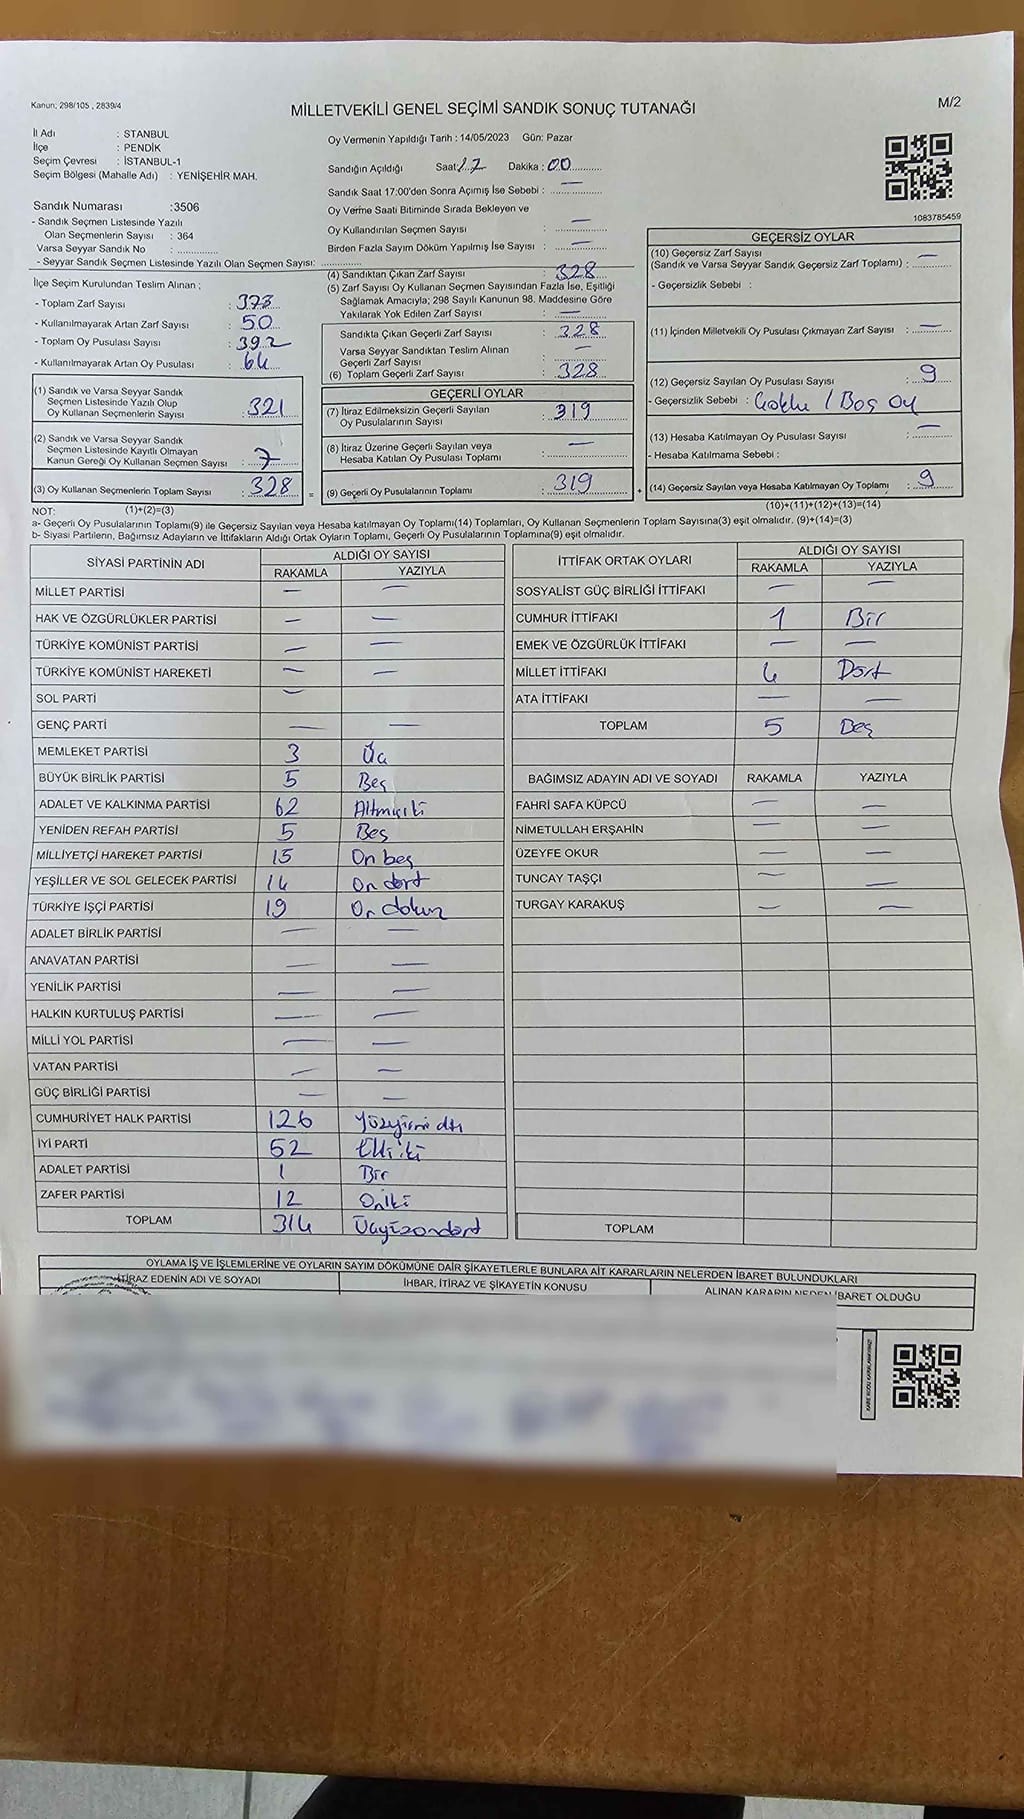 Kanun; 298/105 , 2839/4
MİLLETVEKİLİ GENEL SEÇİMİ SANDIK SONUÇ TUTANAĞI
M/2
İl Adı : STANBUL
İlçe : PENDİK
Seçim Çevresi : İSTANBUL-1
Seçim Bölgesi (Mahalle Adı) : YENİŞEHİR MAH.
Sandık Numarası :3506
- Sandık Seçmen Listesinde Yazılı
Olan Seçmenlerin Sayısı : 364
Varsa Seyyar Sandık No :
- Seyyar Sandık Seçmen Listesinde Yazılı Olan Seçmen Sayısı:
Oy Vermenin Yapıldığı Tarih : 14/05/2023 Gün: Pazar
Sandığın Açıldığı Saat: 17 Dakika : 00
Sandık Saat 17:00'den Sonra Açımış İse Sebebi : —
Oy Verme Saati Bitiminde Sırada Bekleyen ve
Oy Kullandırılan Seçmen Sayısı : —
Birden Fazla Sayım Döküm Yapılmış İse Sayısı : —
1083785459
İlçe Seçim Kurulundan Teslim Alınan ;
- Toplam Zarf Sayısı : 378
- Kullanılmayarak Artan Zarf Sayısı : 50
- Toplam Oy Pusulası Sayısı : 392
- Kullanılmayarak Artan Oy Pusulası : 64
(1) Sandık ve Varsa Seyyar Sandık
Seçmen Listesinde Yazılı Olup
Oy Kullanan Seçmenlerin Sayısı : 321
(2) Sandık ve Varsa Seyyar Sandık
Seçmen Listesinde Kayıtlı Olmayan
Kanun Gereği Oy Kullanan Seçmen Sayısı : 7
(3) Oy Kullanan Seçmenlerin Toplam Sayısı : 328
(4) Sandıktan Çıkan Zarf Sayısı : 328
(5) Zarf Sayısı Oy Kullanan Seçmen Sayısından Fazla İse, Eşitliği
Sağlamak Amacıyla; 298 Sayılı Kanunun 98. Maddesine Göre
Yakılarak Yok Edilen Zarf Sayısı : —
Sandıkta Çıkan Geçerli Zarf Sayısı : 328
Varsa Seyyar Sandıktan Teslim Alınan
Geçerli Zarf Sayısı : —
(6) Toplam Geçerli Zarf Sayısı : 328
GEÇERLİ OYLAR
(7) İtiraz Edilmeksizin Geçerli Sayılan
Oy Pusulalarının Sayısı : 319
(8) İtiraz Üzerine Geçerli Sayılan veya
Hesaba Katılan Oy Pusulası Toplamı : —
= (9) Geçerli Oy Pusulalarının Toplamı : 319 +
GEÇERSİZ OYLAR
(10) Geçersiz Zarf Sayısı
(Sandık ve Varsa Seyyar Sandık Geçersiz Zarf Toplamı) : —
- Geçersizlik Sebebi :
(11) İçinden Milletvekili Oy Pusulası Çıkmayan Zarf Sayısı : —
(12) Geçersiz Sayılan Oy Pusulası Sayısı : 9
- Geçersizlik Sebebi : / Boş Oy
(13) Hesaba Katılmayan Oy Pusulası Sayısı : —
- Hesaba Katılmama Sebebi :
(14) Geçersiz Sayılan veya Hesaba Katılmayan Oy Toplamı : 9
NOT: (1)+(2)=(3)
(10)+(11)+(12)+(13)=(14)
a- Geçerli Oy Pusulalarının Toplamı(9) ile Geçersiz Sayılan veya Hesaba katılmayan Oy Toplamı(14) Toplamları, Oy Kullanan Seçmenlerin Toplam Sayısına(3) eşit olmalıdır. (9)+(14)=(3)
b- Siyasi Partilerin, Bağımsız Adayların ve İttifakların Aldığı Ortak Oyların Toplamı, Geçerli Oy Pusulalarının Toplamına(9) eşit olmalıdır.
SİYASİ PARTİNİN ADI ALDIĞI OY SAYISI
RAKAMLA YAZIYLA
MİLLET PARTİSİ — —
HAK VE ÖZGÜRLÜKLER PARTİSİ — —
TÜRKİYE KOMÜNİST PARTİSİ — —
TÜRKİYE KOMÜNİST HAREKETİ — —
SOL PARTİ —
GENÇ PARTİ — —
MEMLEKET PARTİSİ 3 Üç
BÜYÜK BİRLİK PARTİSİ 5 Beş
ADALET VE KALKINMA PARTİSİ 62 Altmışiki
YENİDEN REFAH PARTİSİ 5 Beş
MİLLİYETÇİ HAREKET PARTİSİ 15 On beş
YEŞİLLER VE SOL GELECEK PARTİSİ 14 On dört
TÜRKİYE İŞÇİ PARTİSİ 19 On dokuz
ADALET BİRLİK PARTİSİ — —
ANAVATAN PARTİSİ — —
YENİLİK PARTİSİ — —
HALKIN KURTULUŞ PARTİSİ — —
MİLLİ YOL PARTİSİ — —
VATAN PARTİSİ — —
GÜÇ BİRLİĞİ PARTİSİ — —
CUMHURİYET HALK PARTİSİ 126 Yüzyirmi altı
İYİ PARTİ 52 Elli iki
ADALET PARTİSİ 1 Bir
ZAFER PARTİSİ 12 Oniki
TOPLAM 314 Üçyüzondört
İTTİFAK ORTAK OYLARI ALDIĞI OY SAYISI
RAKAMLA YAZIYLA
SOSYALİST GÜÇ BİRLİĞİ İTTİFAKI — —
CUMHUR İTTİFAKI 1 Bir
EMEK VE ÖZGÜRLÜK İTTİFAKI — —
MİLLET İTTİFAKI 4 Dört
ATA İTTİFAKI — —
TOPLAM 5 Beş
BAĞIMSIZ ADAYIN ADI VE SOYADI RAKAMLA YAZIYLA
FAHRİ SAFA KÜPCÜ — —
NİMETULLAH ERŞAHİN — —
ÜZEYFE OKUR — —
TUNCAY TAŞÇI — —
TURGAY KARAKUŞ — —
TOPLAM
OYLAMA İŞ VE İŞLEMLERİNE VE OYLARIN SAYIM DÖKÜMÜNE DAİR ŞİKAYETLERLE BUNLARA AİT KARARLARIN NELERDEN İBARET BULUNDUKLARI
İTİRAZ EDENİN ADI VE SOYADI İHBAR, İTİRAZ VE ŞİKAYETİN KONUSU ALINAN KARARIN NEDEN İBARET OLDUĞU